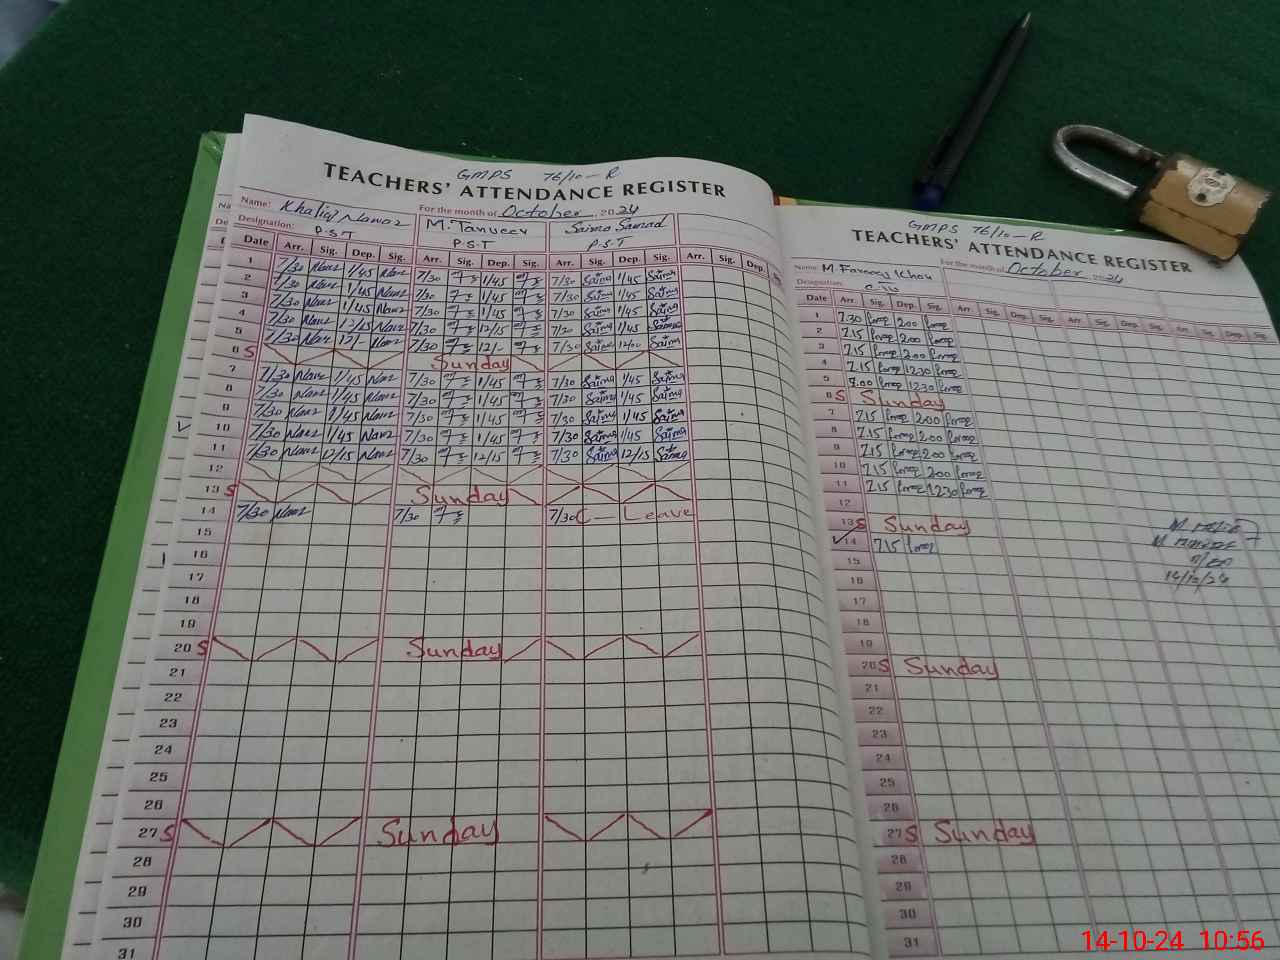 GMPS 76/10-R
TEACHERS' ATTENDANCE REGISTER
Name: Khaliq Nawaz For the month of October 2024
Designation: P.S.T M. Tanveer P.S.T Saima Samad P.S.T
Date Arr. Sig. Dep. Sig. Arr. Sig. Dep. Sig. Arr. Sig. Dep. Sig. Arr. Sig. Dep.
1 7/30 Nawz 1/45 Nawz 7/30 1/45 7/30 Saima 1/45 Saima
2 7/30 Nawz 1/45 Nawz 7/30 1/45 7/30 Saima 1/45 Saima
3 7/30 Nawz 1/45 Nawz 7/30 1/45 7/30 Saima 1/45 Saima
4 7/30 Nawz 12/15 Nawz 7/30 12/15 7/30 Saima 1/45 Saima
5 7/30 Nawz 12/- Nawz 7/30 12/- 7/30 Saima 12/00 Saima
6 S Sunday
7 7/30 Nawz 1/45 Nawz 7/30 1/45 7/30 Saima 1/45 Saima
8 7/30 Nawz 1/45 Nawz 7/30 1/45 7/30 Saima 1/45 Saima
9 7/30 Nawz 1/45 Nawz 7/30 1/45 7/30 Saima 1/45 Saima
10 7/30 Nawz 1/45 Nawz 7/30 1/45 7/30 Saima 1/45 Saima
11 7/30 Nawz 12/15 Nawz 7/30 12/15 7/30 Saima 12/15 Saima
12
13 S Sunday
14 7/30 Nawz 7/30 7/30 C - Leave
15
16
17
18
19
20 S Sunday
21
22
23
24
25
26
27 S Sunday
28
29
30
31
GMPS 76/10-R
TEACHERS' ATTENDANCE REGISTER
Name: M. Farooq Khan For the month of October 2024
Designation:
Date Arr. Sig. Dep. Sig. Arr. Sig. Dep. Sig. Arr. Sig. Dep. Sig. Arr. Sig. Dep. Sig.
1 7.30 2.00
2 7.15 2.00
3 7.15 2.00
4 7.15 12.30
5 7.00 12.30
6 S Sunday
7 7.15 2.00
8 7.15 2.00
9 7.15 2.00
10 7.15 2.00
11 7.15 12.30
12
13 S Sunday
14 7.15
15
14/10/24
16
17
18
19
20 S Sunday
21
22
23
24
25
26
27 S Sunday
28
29
30
31
14-10-24 10:56